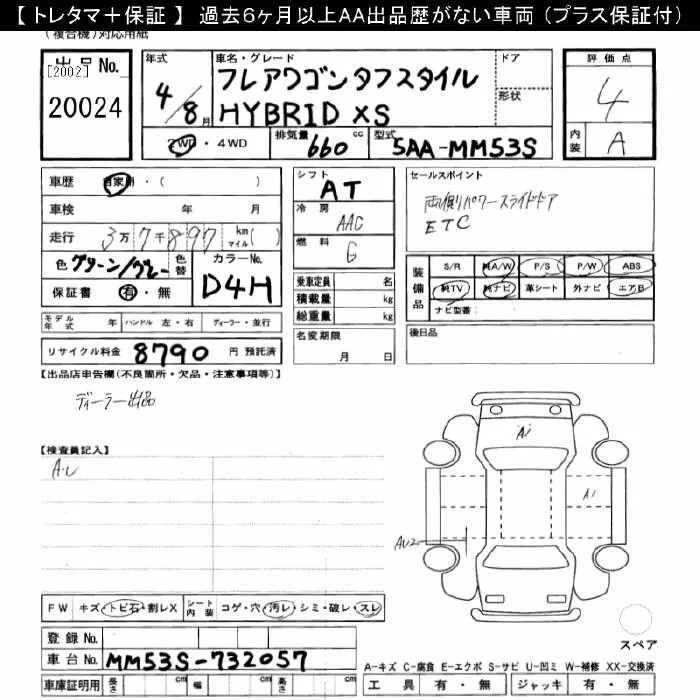 【 トレタマ＋保証 】 過去６ヶ月以上ＡＡ出品歴がない車両 （プラス保証付）
(複合機)対応用紙
出品No.
[2002]
20024
年式
4/8月
車名・グレード
フレアワゴンタフスタイル
HYBRID XS
ドア
形状
2WD・4WD
排気量 660 cc
型式 5AA-MM53S
評価点
4
内装 A
車歴 自家用・( )
車検 年 月
走行 3万7千897 km マイル( )
色 グリーン/グレー 色替
カラーNo.
D4H
保証書 有・無
モデル年式 年 ハンドル 左・右 ディーラー・並行
リサイクル料金 8790 円 預託済
シフト
AT
冷房
AAC
燃料
G
乗車定員 名
積載量 kg
総重量 kg
名変期限
月 日
セールスポイント
両側パワースライドドア
ETC
装備品
S/R 純A/W P/S P/W ABS
純TV 純ナビ 革シート 外ナビ エアB
ナビ型番:
後日品
【出品店申告欄(不良箇所・欠品・注意事項等)】
ディーラー出品
【検査員記入】
A・レ
A1
A1
AU2
FW キズ・トビ石・割レX シート内装 コゲ・穴・汚レ・シミ・破レ・スレ
登録No.
車台No. MM53S-732057
車庫証明用 長さ cm 幅 cm 高さ cm
スペア
A-キズ C-腐食 E-エクボ S-サビ U-凹ミ W-補修 XX-交換済
工具 有・無 ジャッキ 有・無